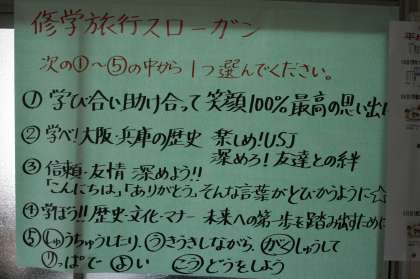 修学旅行スローガン
次の①～⑤の中から1つ選んでください。
①学び合い助け合って笑顔100%最高の思い出
②学べ!大阪・兵庫の歴史 楽しめ!USJ
深めろ!友達との絆
③信頼・友情 深めよう!!
「こんにちは」「ありがとう」そんな言葉がとびかうように☆
④学ぼう!!歴史・文化・マナー 未来への第一歩を踏み出すために
⑤しゅうちゅうしたり、うきうきしながら、がくしゅうして
りっぱで よい こうどうをしよう